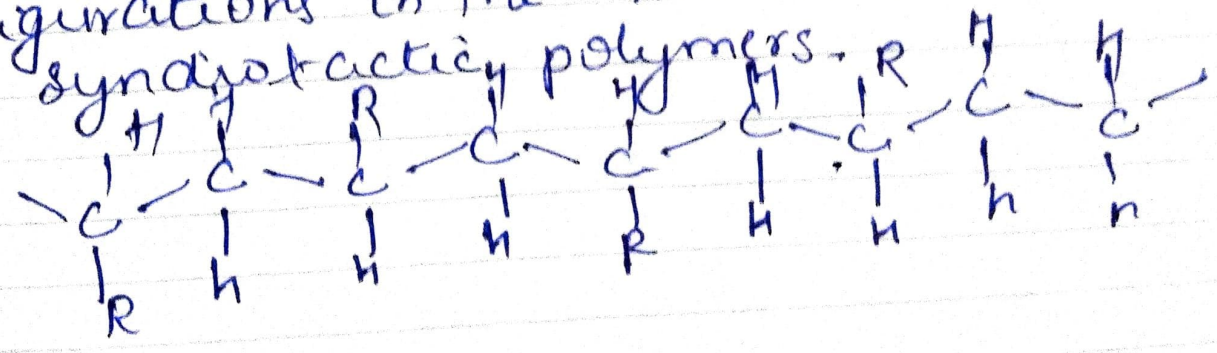 gurations in the
syndiotactic polymers.
H H R H H H R H H
C C C C C C C C C
R H H H R H H H H